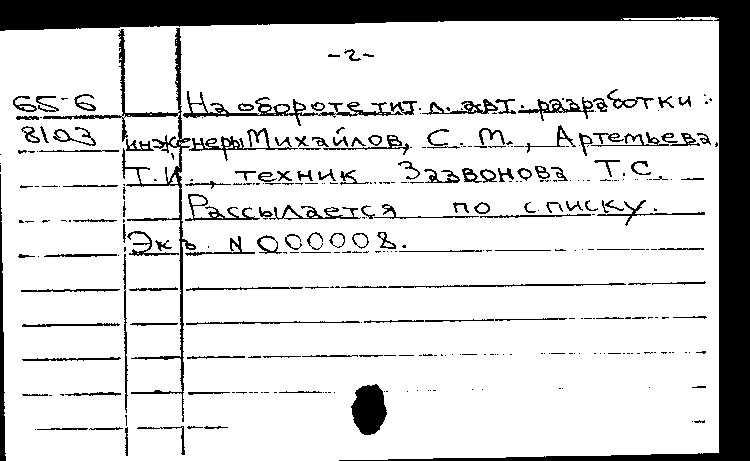 -2-
65-6 На обороте тит. л. авт. разработки:
8103 инженеры Михайлов, С. М., Артемьева,
Т.И., техник Зазвонова Т.С.
Рассылается по списку.
Экз. N 000008.